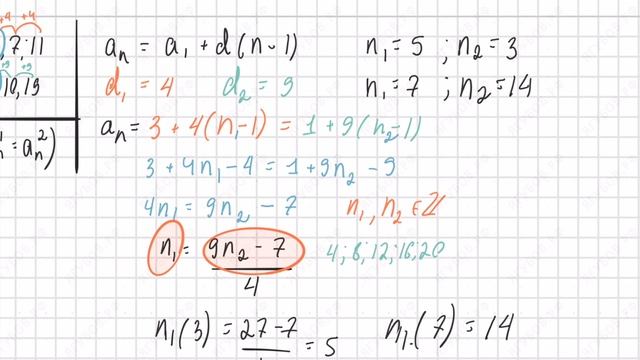 +4 +4
7; 11
+9 +9
10, 19
= aₙ²)
aₙ = a₁ + d(n-1)
n₁ = 5 ; n₂ = 3
d₁ = 4 d₂ = 9
n₁ = 7 ; n₂ = 14
aₙ = 3 + 4(n₁-1) = 1 + 9(n₂-1)
3 + 4n₁ - 4 = 1 + 9n₂ - 9
4n₁ = 9n₂ - 7
n₁, n₂ ∈ ℤ
n₁ = 9n₂ - 7 / 4
4; 8; 12; 16; 20
n₁(3) = 27 - 7 / = 5
n₁(7) = 14